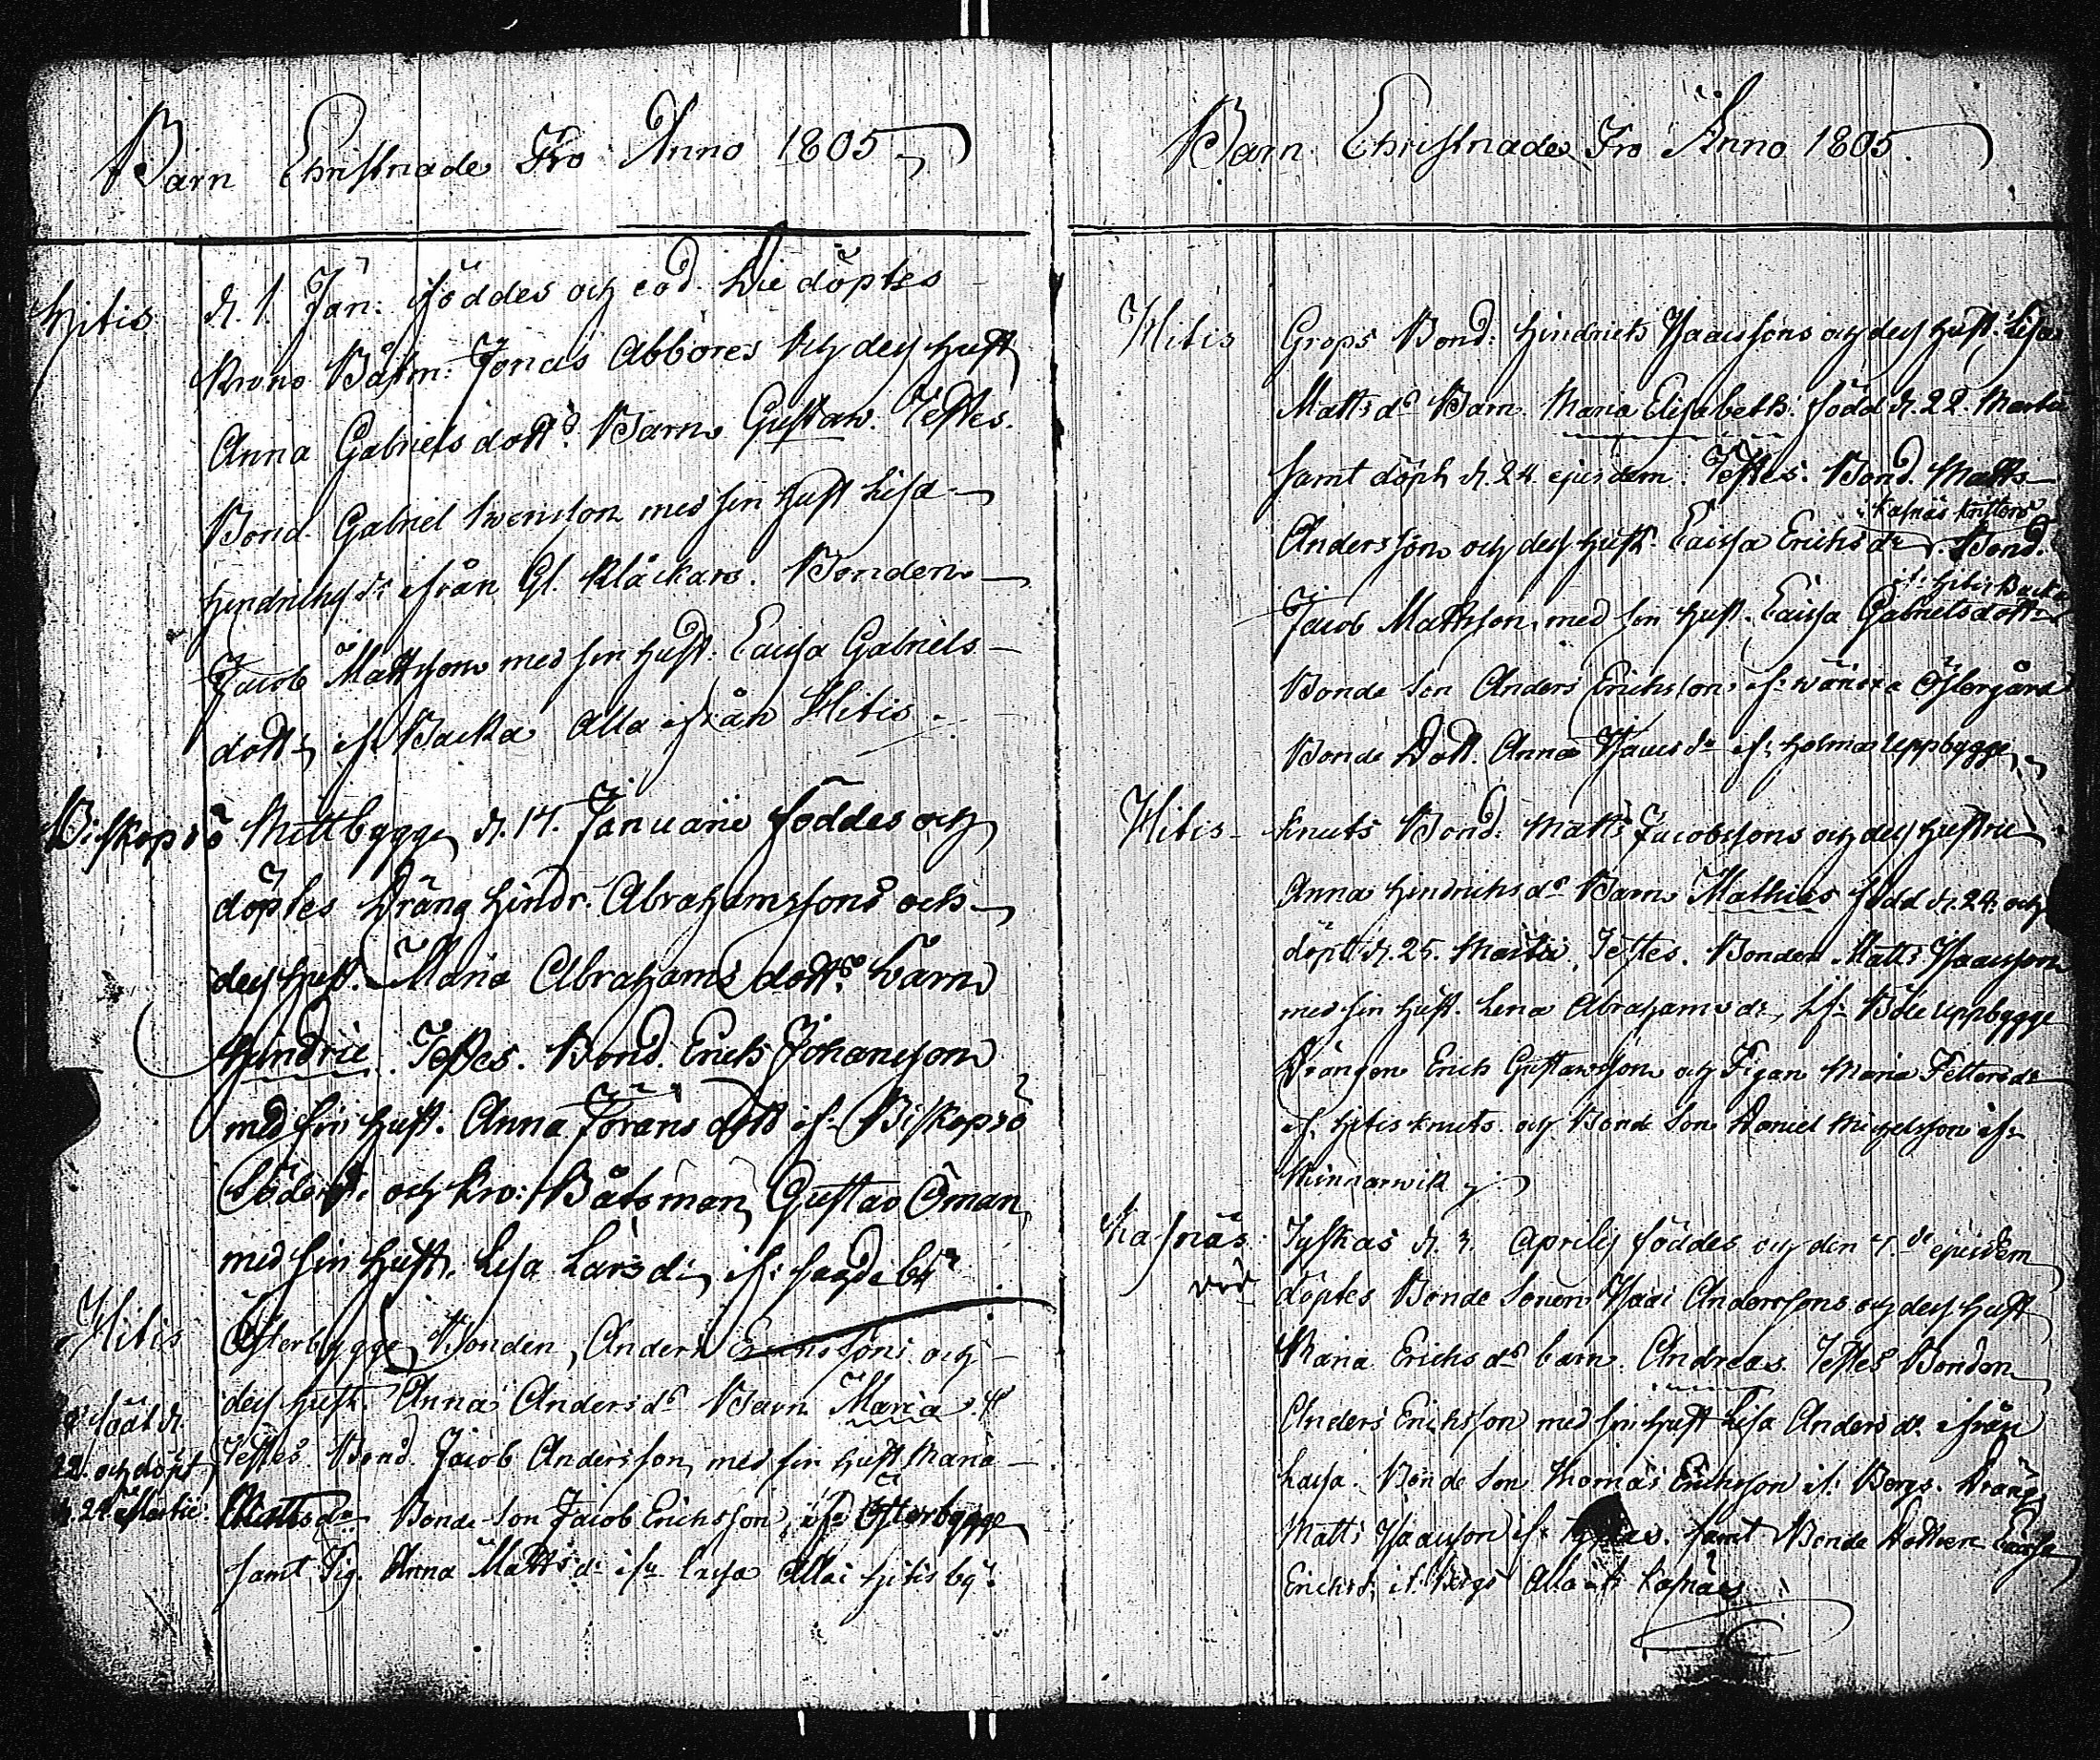 Barn Christnade Fro Anno 1805
Hitis d. 1. Jan: föddes och eod. Die döptes
Krono Båtsm: Jonas Abbores och dess Hust
Anna Gabriels dottrs Barn Gustaw. Testes.
Bond. Gabriel Swensson med sin Hust Lisa
Hendrichsdr ifrån Gl. Klåckars. Bonden
Jacob Mattsson med sin Hust: Caisa Gabriels
dottr if. Backa Alla ifrån Hitis.
Biskopsö Mittbygge d. 17. Januarii föddes och
döptes Dräng Hindr. Abrahamssons och
dess Hust. Maria Abrahams dottrs barn
Hindric. Testes. Bond. Erich Johansson
med sin Hust. Anna Jörans dott if. Biskopsö
Söderb. och Kro: Båtsman Gustav Öman
med sin Hust. Lisa Lars dr if: sagde by
Hitis Österbygge Bonden Anders sons och
dess Hust. Anna Anders ds Barn Maria #
# född d.
22. och döpt
d. 24 Martii.
Testes Bond. Jacob Andersson med sin Hust Maria
Matts dr Bonde Son Jacob Erichsson if Österbygge
samt Pig. Anna Matts dr ifr Lassa Alla i Hitis by.
Barn Christnade Fro Anno 1805.
Hitis Grops Bond: Hindrich Isaacssons och dess Hust. Lisa
Matts ds Barn Maria Elisabeth: född d. 22. Martii
samt döpt d. 24 ejusdem. Testes. Bond. Matts
Andersson och dess Hust. Caisa Erichs dr i Kasnäs Knutters Bond.
Jacob Mattsson, med sin Hust. Caisa Gabrielsdottr if. Hitis Backa
Bonde Son Anders Erichsson, if: wänoxa Östergård
Bonde Dott. Anna Isaacs dr if: Holma Uppbygge
Hitis Knuts Bond: Matts Jacobssons och dess Hustru
Anna Hindrichs ds Barn Mathias född d. 24. och
döpt d. 25. Martii, Testes. Bonden Matts Isaacsson
med sin Hust. Lena Abrahams dr, if: Böle Uppbygge
Drängen Erich Gustawsson och Pigan Maria Petters dr
if. Hitis Knuts. och Bonde Son Daniel Michelsson ifr
wik
Kasnäs Tyskas d. 3. Aprilis föddes och den 7. de ejusdem
döptes Bonde Sonen Isaac Anderssons och dess Hust
Maria Erichs ds barn Andreas. Testes Bonden
Anders Erichsson med sin Hust Lisa Anders dr ifrån
Lassa. Bonde Son Thomas Erichsson if: Bergs. Dräng
Matts Isaacsson if: Tyskas. samt Bonde Dottren Caisa
Erichsdr if. Bergs Alla ifr Kasnäs